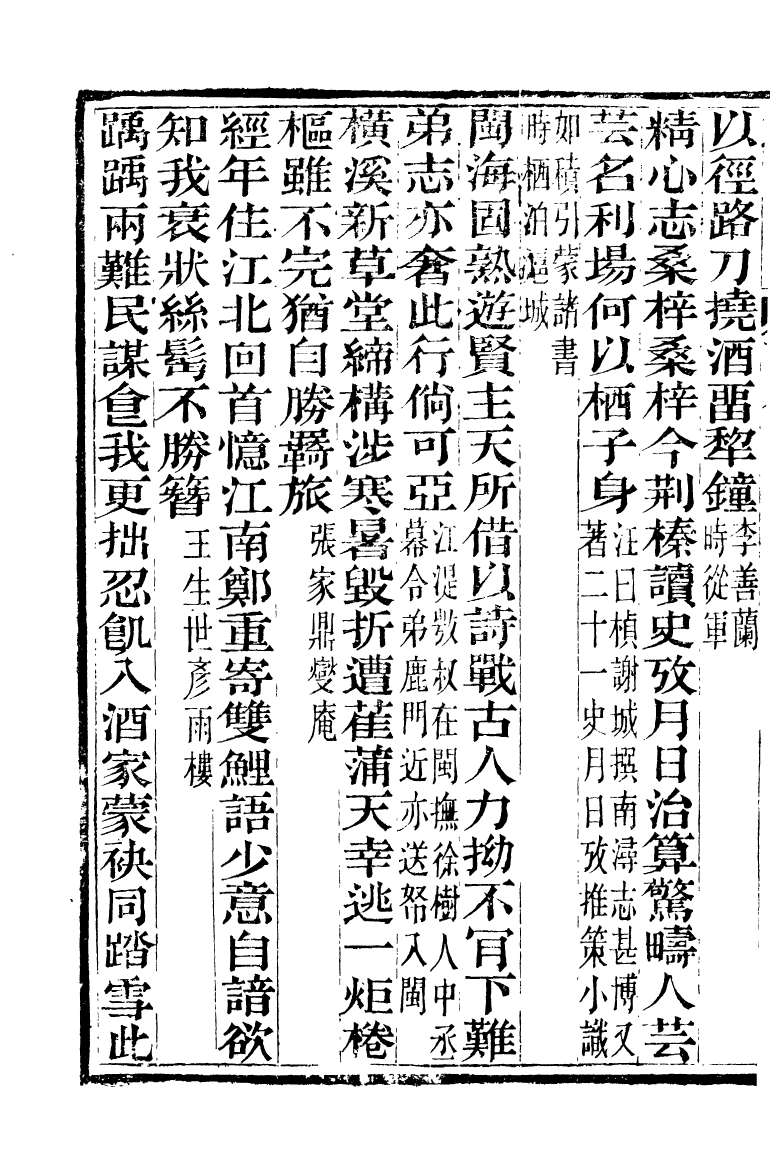 以徑路刀撓酒畱犂鐘李善蘭時從軍
精心志桑梓桑梓今荆榛讀史攷月日治算驚疇人芸
芸名利塲何以栖子身汪曰楨謝城撰南潯志甚博又著二十一史月日攷推策小識
如積引蒙諸書時栖泊滬城
閩海固熟遊賢主天所借以詩戰古人力拗不肎下難
弟志亦奢此行倘可亞江湜弢叔在閩撫徐樹人中丞幕令弟鹿門近亦送帑入閩
橫溪新草堂締構涉寒暑毀折遭萑蒲天幸逃一炬棬
樞雖不完猶自勝羇旅張家鼎燮庵
經年住江北回首憶江南鄭重寄雙鯉語少意自諳欲
知我衰狀絲髩不勝簪王生世彥雨樓
踽踽兩難民謀㑑我更拙忍飢入酒家蒙袂同踏雪此